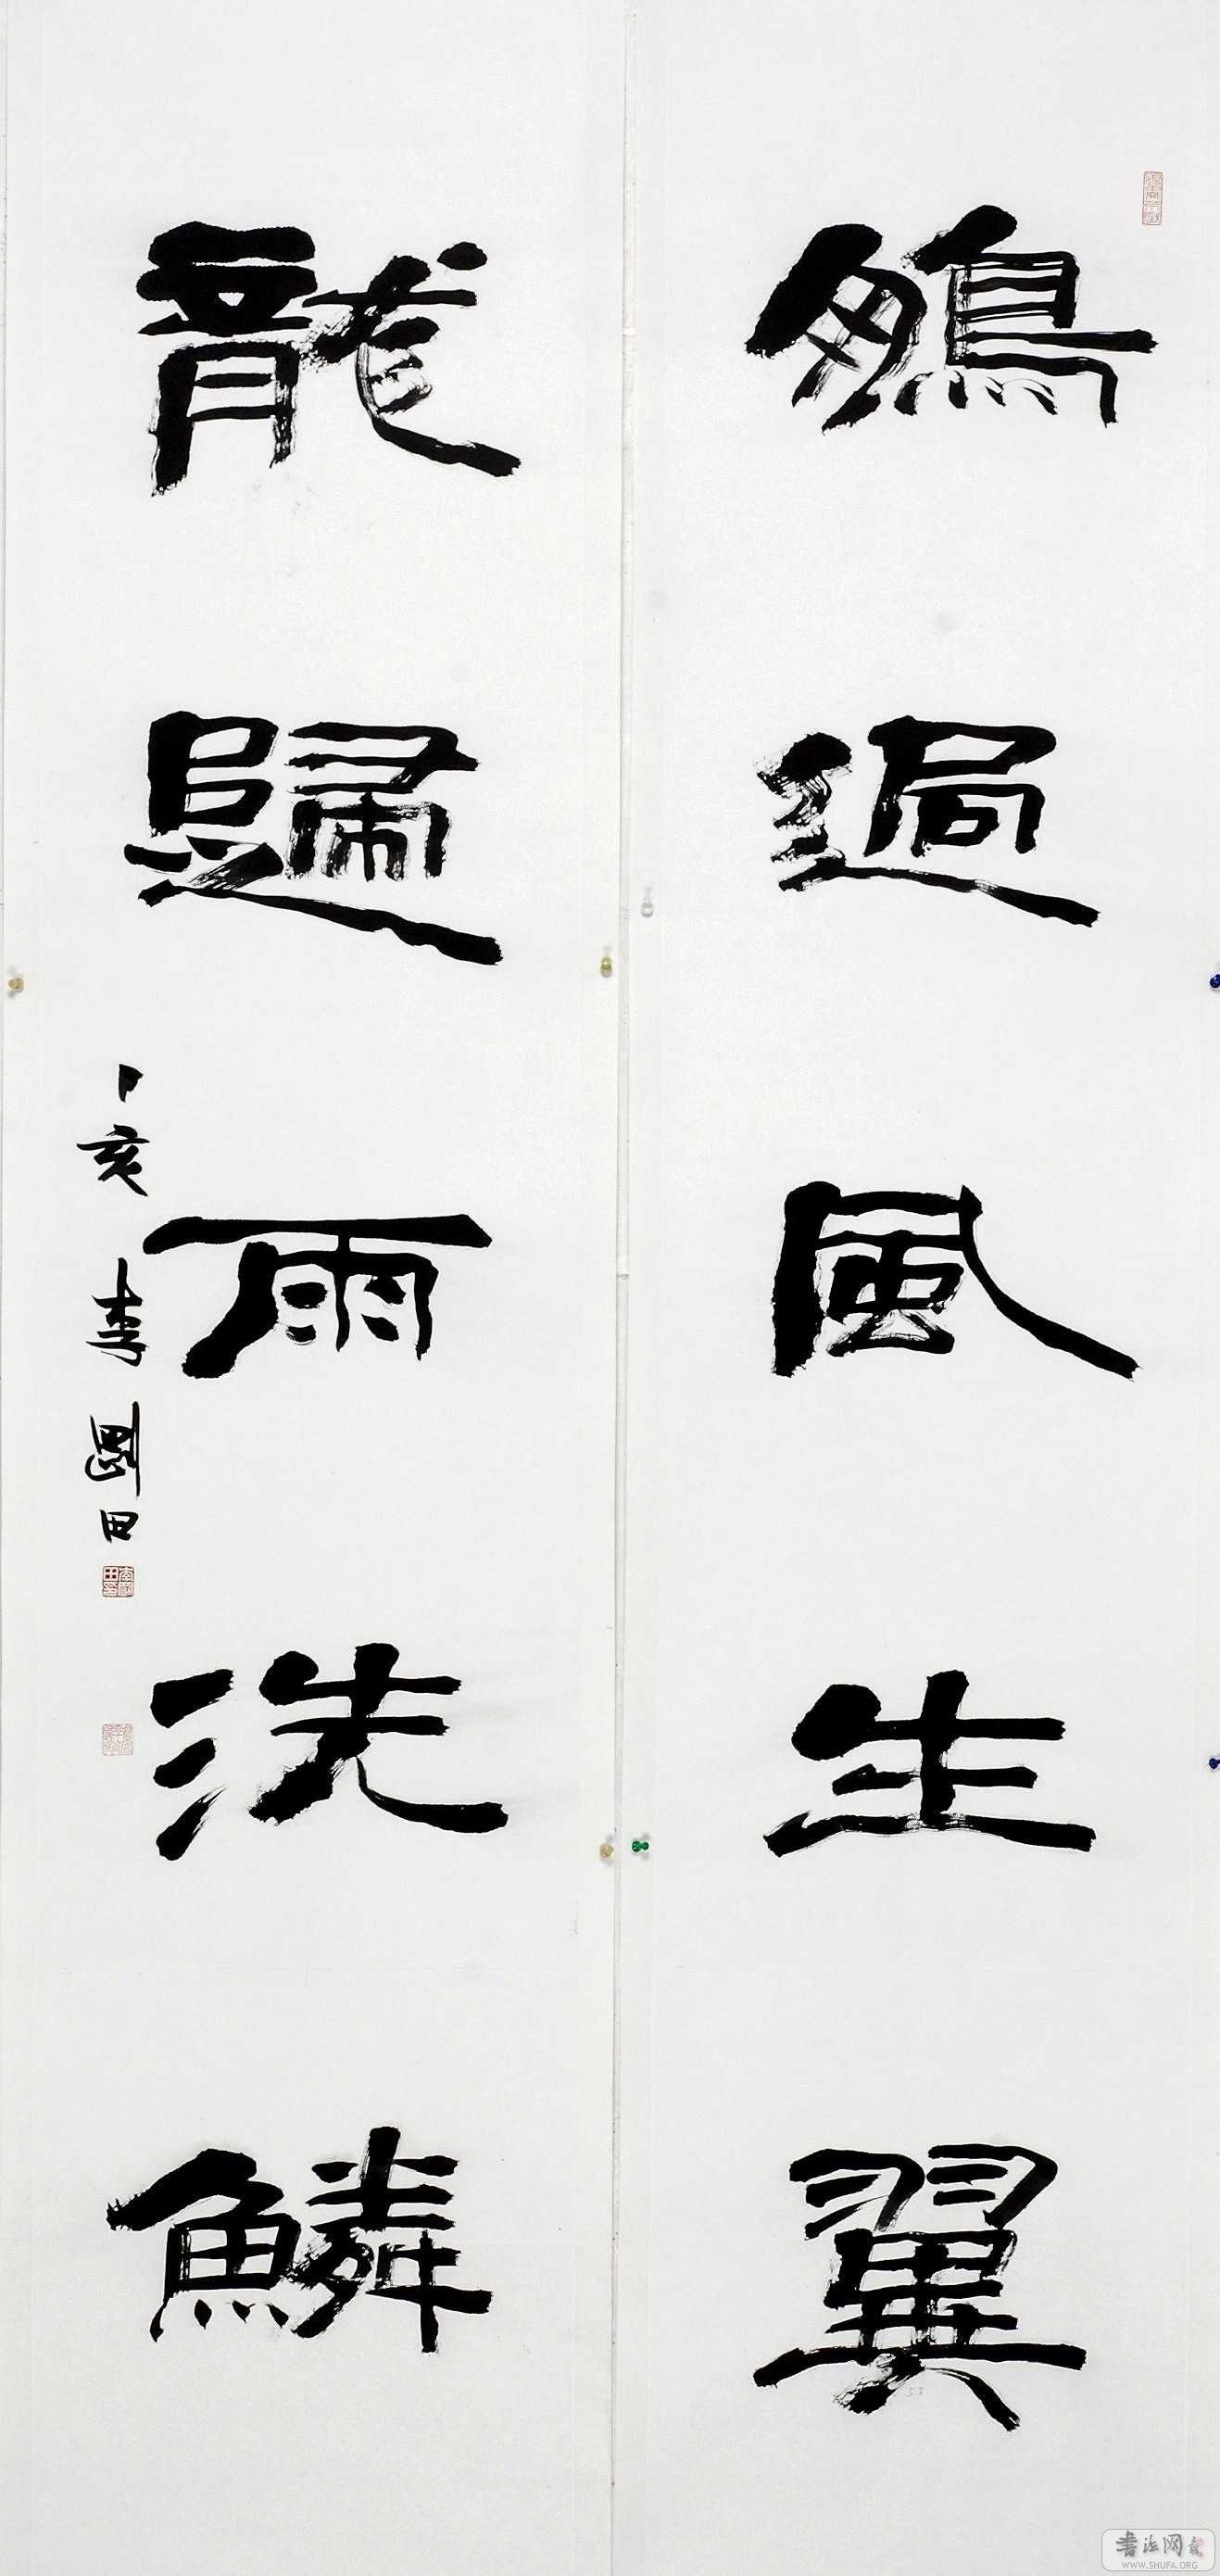 鵬過風生翼
龍歸雨洗鱗
丁亥李剛田
书法网
WWW.SHUFA.ORG